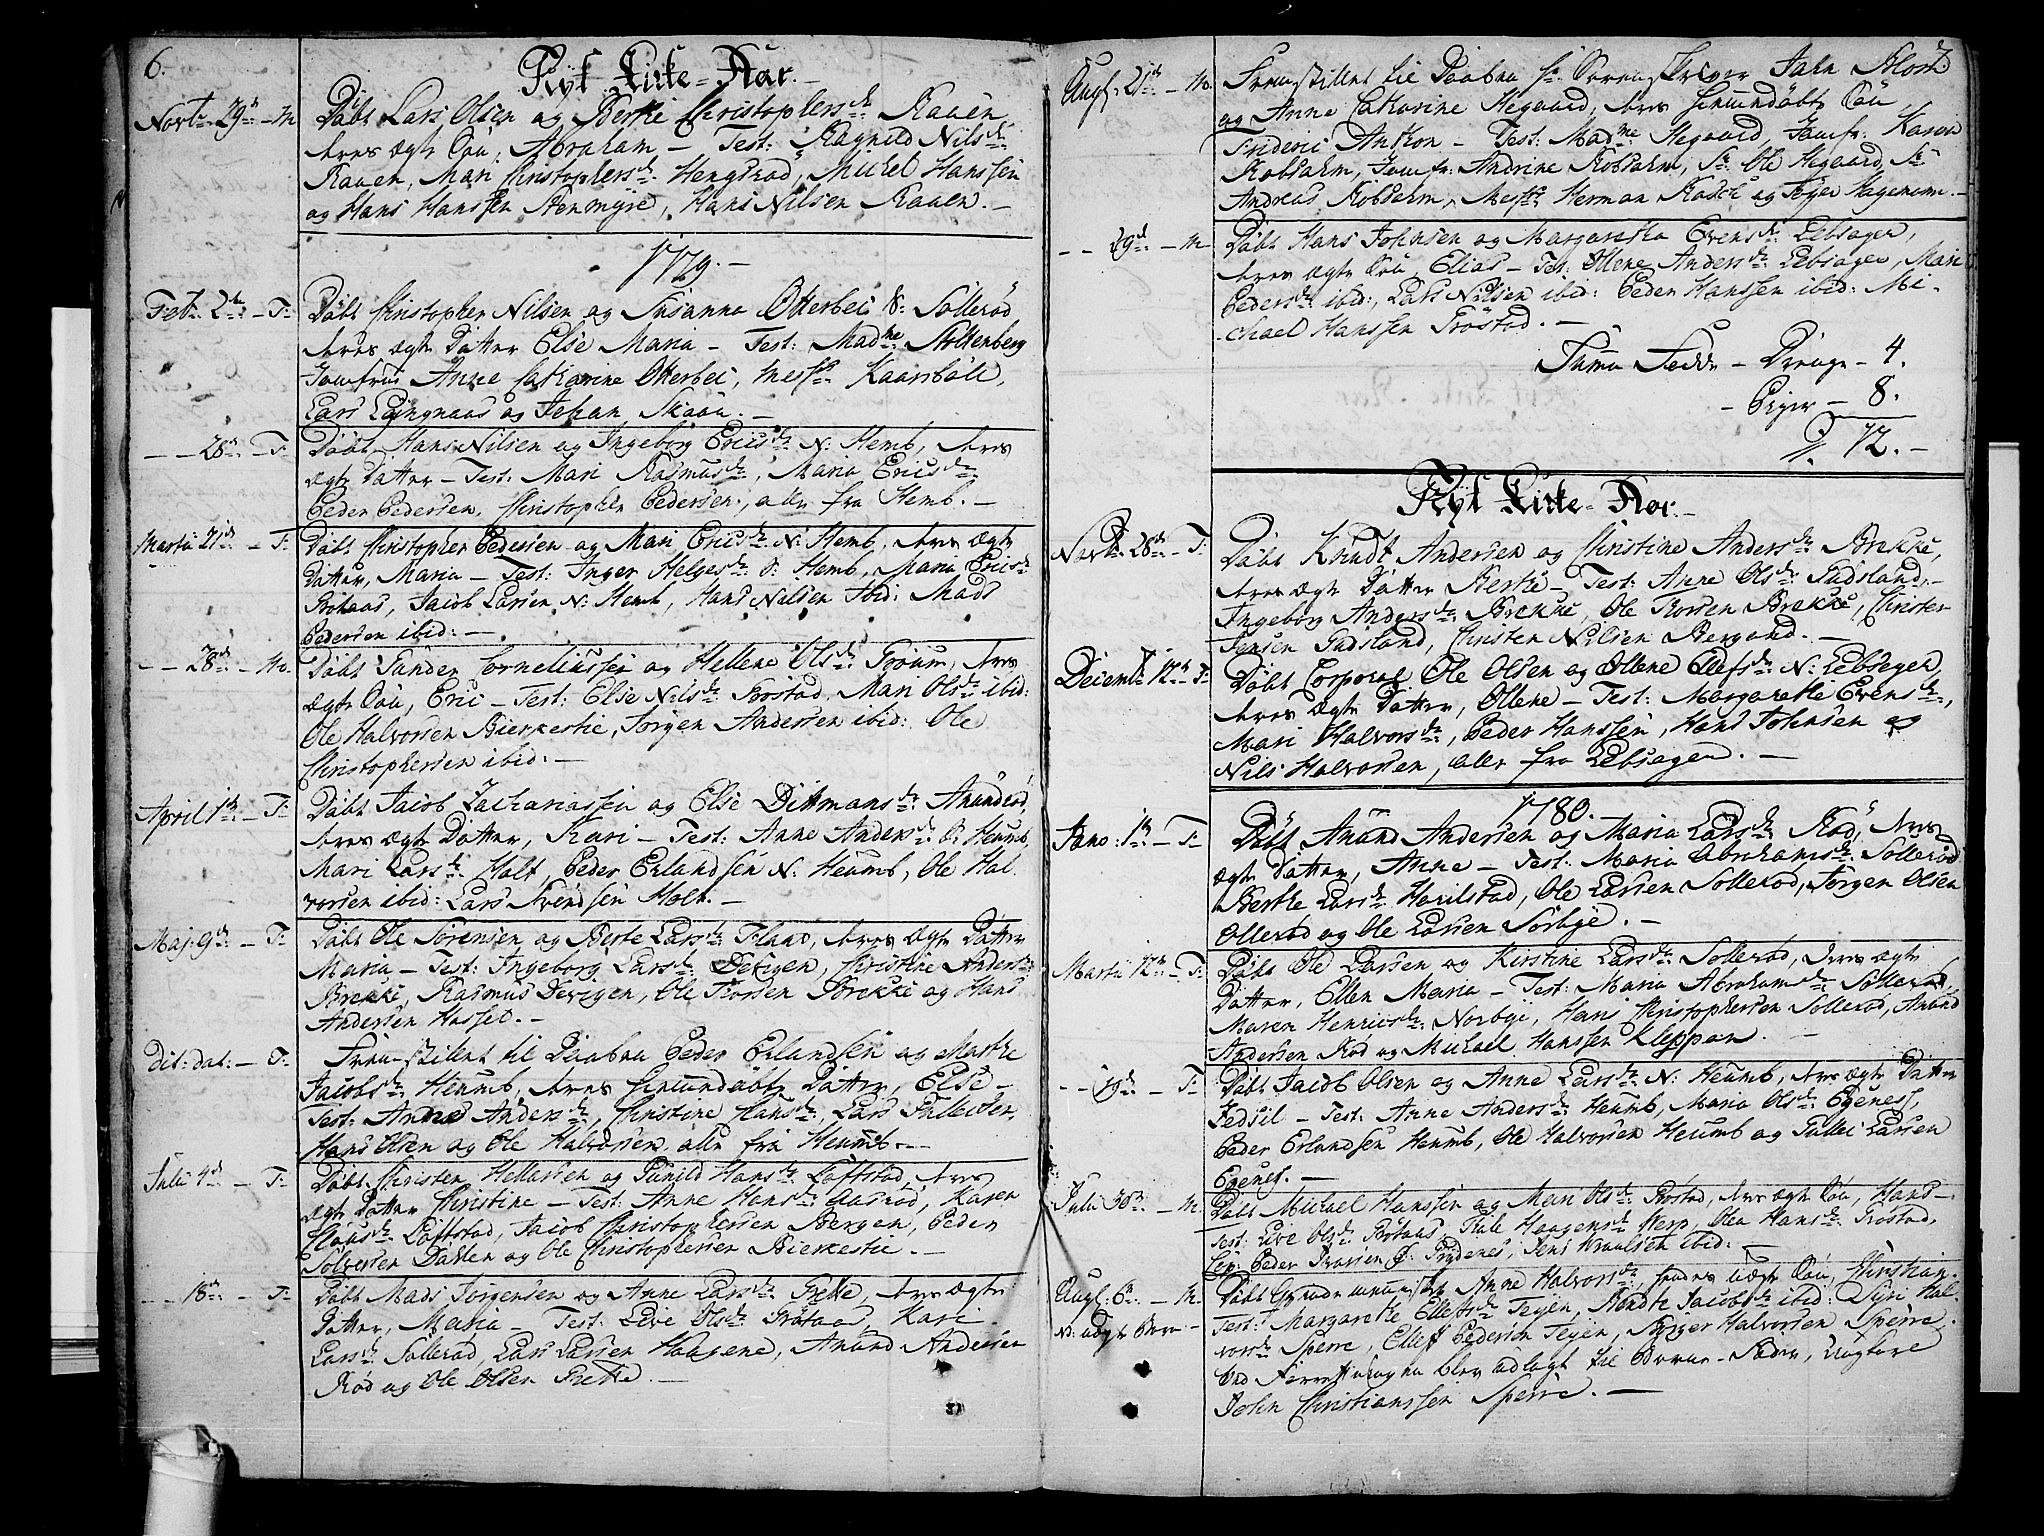 6.
Nyt Kirke-Aar.
Novbr. 29de - M Döbt Lars Olsen og Berthe Christophersdr. Raaen,
deres ægte Sön, Abraham - Test: Ragnild Nilsdr.
Raaen, Mari Christophersdr. Hengsrød, Mickel Hanssen
og Hans Hanssen Stenmyre, Hans Nilsen Raaen. -
1779. -
Feb. 2de - F: Döbt Christopher Nilsen og Susanna Otterbei S: Sollerød
deres ægte Datter Else Maria - Test: Madme Stoltenberg
Jomfrue Anne Catharine Otterbei, Messrs Kaarsböll,
Lars Lyngaas og Johan Skaau. -
- - 28de - F: Döbt Hans Nilsen og Ingeborg Ericsdr. N: Hemb, deres
ægte Datter - Test: Mari Rasmusdr., Maria Ericsdr.
Peder Pedersen, Christopher Pedersen, alle fra Hemb. -
Martii 21de - F: Döbt Christopher Pedersen og Mari Ericsdr. N: Hemb, deres ægte
Datter, Maria - Test: Inger Helgesdr. S: Hemb, Maria Ericsdr.
Röthaas, Jacob Larsen N: Hemb, Hans Nilsen Ibid: Mads
Pedersen ibid: -
- - 28de - M. Döbt Gunder Corneliussen og Hellene Olsdr. Troum, deres
ægte Sön, Eric - Test: Else Nilsdr. Tröstad, Mari Olsdr. ibid:
Ole Halvorsen Bierkestie, Jörgen Andersen ibid: Ole
Christophersen ibid: -
April 1te - F: Döbt Jacob Zachariassen og Else Dittmansdr. Amundrød,
deres ægte Datter, Kari - Test: Anne Andersdr. S: Heumb,
Mari Larsdr. Holt, Peder Erlandsen N: Heumb, Ole Hal-
vorsen ibid: Lars Svendsen Holt. -
Maj. 9de - F: Döbt Ole Sörensen og Berte Larsdr. Fland, deres ægte Datter
Maria - Test: Ingeborg Larsdr. Devigen, Christine Andersdr.
Brekke, Rasmus Devigen, Ole Thorsen Brekke og Hans
Andersen Hasset. -
Dit: dat: - F: Frem-stillet til Daaben Peder Erlandsen og Marthe
Jacobsdr. Heumb, deres hiemmedöbte Datter, Else -
Test: Anne Andersdr., Christine Hansdr. Lars Tullefsen,
Hans Olsen og Ole Halvorsen alle fra Heumb. -
Julii 4de - F: Döbt Christen Hellessen og Gunild Hansdr. Löffstad, deres
ægte Datter Christine - Test: Anne Hansdr. Aasrød, Karen
Clausdr. Löffstad, Jacob Christophersen Bergen, Peder
Solvesen Dahlen og Ole Christophersen Bierkestie. -
- - 18de - F: Döbt Mads Jörgensen og Anne Larsdr. Frette, deres ægte
Datter, Maria - Test: Live Olsdr. Tröstad, Kari
Larsdr. Sollerød, Lars Larsen Haagene, Anund Andersen
Rød og Ole Olsen Frette. -
7
Augs. 21de - M. Fremstillet til Daaben Sr. Sorenskriver John Blom
og Anne Catharine Hegaard, deres hiemmedöbte Sön,
Frideric Anthon - Test: Madme Hegaard, Jomfr: Karen
Robsahm, Jomfr: Andrine Robsahm, Sr. Ole Hegaard, Sr.
Andreas Robsahm, Messrs Herman Rasch og Jeger Hagemann. -
- - 29de - M Döbt Hans Johnsen og Margaretha Evensdr. Lebsagen,
deres ægte Sön, Elias - Test: Ollene Andersdr. Lebsagen, Mari
Pedersdr. ibid:, Lars Nilsen ibid: Peder Hanssen ibid: Mi-
chael Hanssen Tröstad. -
Suma Födde - Drenge - 4.
- Piger - 8.
12. -
Nyt Kirke-Aar. -
Novb. 28de - F: Döbt Knudt Andersen og Christine Andersdr. Brekke,
deres ægte Datter Berthe - Test: Anne Olsdr. Sudsland, -
Ingeborg Andersdr. Brekke, Ole Thorsen Brekke, Christen
Jensen Sudsland, Christen Nilsen Bergand. -
Decemb. 12te F: Döbt Corporal Ole Olsen og Ollene Ellefsdr. N: Lebsagen
deres ægte Datter, Ollene - Test: Margarethe Evensdr.,
Mari Halvorsdr., Peder Hanssen, Hans Johnsen og
Nils Halvorsen, alle fra Lebsagen. -
1780.
Jano: 1te - F: Döbt Anund Andersen og Maria Larsdr. Rød, deres
ægte Datter, Anne - Test: Maria Abrahamsdr. Sollerød
Berthe Larsdr. Harilstad, Ole Larsen Sollerød, Jörgen Olsen
Ollerød og Ole Larsen Sörbye. -
Martii 12te - F: Döbt Ole Larsen og Kirstine Larsdr. Sollerød, deres ægte
Datter, Ellen Maria - Test: Maria Abrahamsdr. Sollerød,
Maren Henricsdr. Norbye, Hans Christophersen Sollerød, Anund
Andersen Rød og Michael Hanssen Kleppan. -
- - 19de - F: Döbt Jacob Olsen og Anne Larsdr. N: Heumb, deres ægte Datter
Sedsil - Test: Anne Andersdr. Heumb, Maria Olsdr. Egenes,
Peder Erlandsen Heumb, Ole Halvorsen Heumb og Tullef Larsen
Egenes. -
Julii 30te - M. Döbt Michael Hanssen og Mari Olsdr. Tröstad, deres ægte Sön, Hans -
Test: Live Olsdr. Röthaas, Gule Haagensdr. Herp, Olea Hansdr. Tröstad,
Peder Iversen Prydenes, Jens Knudsen ibid: -
Augs. 6te - M. Döbt Anne Halvorsdr., hendes uægte Sön, Christian.
N: uægte Barn - Test: Margarethe Ellefsdr. Teyen, Berthe Jacobsdr. ibid: Dyri Hal-
vorsdr. Sperre, Ellef Pedersen Teyen, Börger Halvorsen Sperre.
Ved Forretningen blev udlagt til Barne-Fader, Ungkarl
John Christianssen Sperre. -